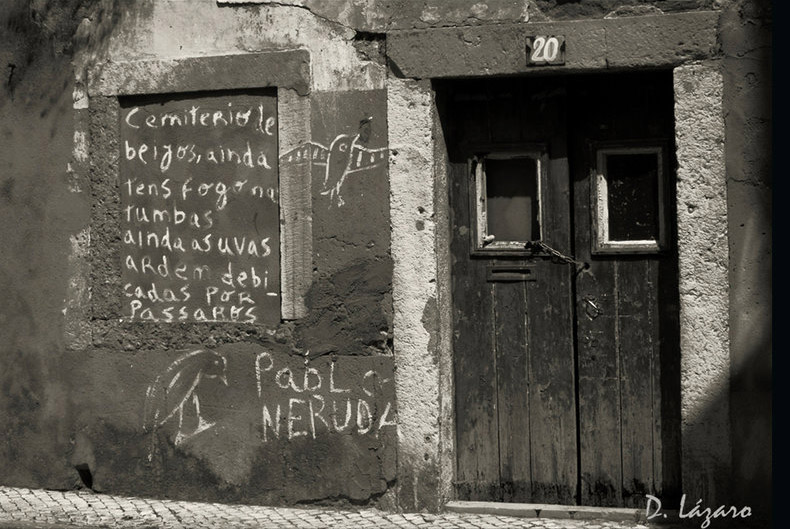 Cemiterio de
beijos, ainda
tens fogo na
tumbas
ainda as uvas
ardem debi
cadas por -
Passaros
Pablo
NERUDA
20
D. Lázaro